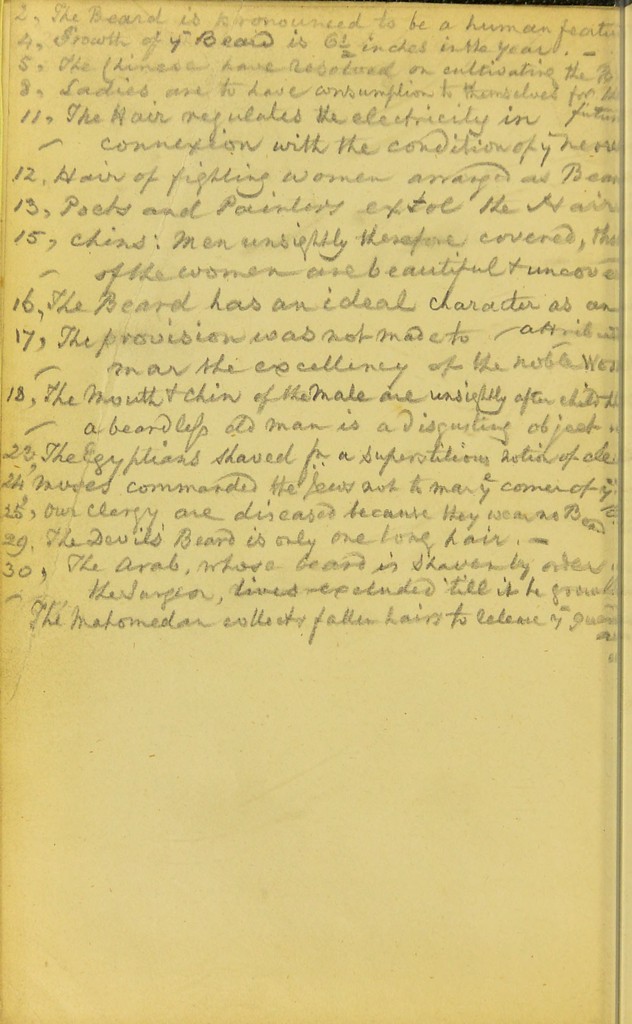 2, The Beard is pronounced to be a human featu
4, Growth of ÿ Beard is 6½ inches in the year. –
5, The Chinese have resolved on cultivating the
8, Ladies are to have consumption to themselves for the
11, The Hair regulates the electricity in future
– connexion with the condition of ÿ nerv
12, Hair of fighting women arranged as Bear
13, Poets and Painters extol the Hair
15, Chins: Men unsightly therefore covered, tho
– of the women are beautiful & uncove
16, The Beard has an ideal character as an
17, The provision was not made to – attribu
– mar the excellency of the noble Wor
18, The Mouth & Chin of the Male are unsightly after childh
– a beardless old man is a disgusting object
22, The Egyptians shaved for a superstitious notion of cle
24, Moses commanded the Jews not to mar ÿ corner of ÿ
25, our Clergy are diseased because they wear no Beard
29, The Devils Beard is only one long hair. –
30, The Arab, whose beard is shaven by order
– the Surgeon, lives excluded till it be grown
The Mahomedan collects fallen hairs to release ÿ